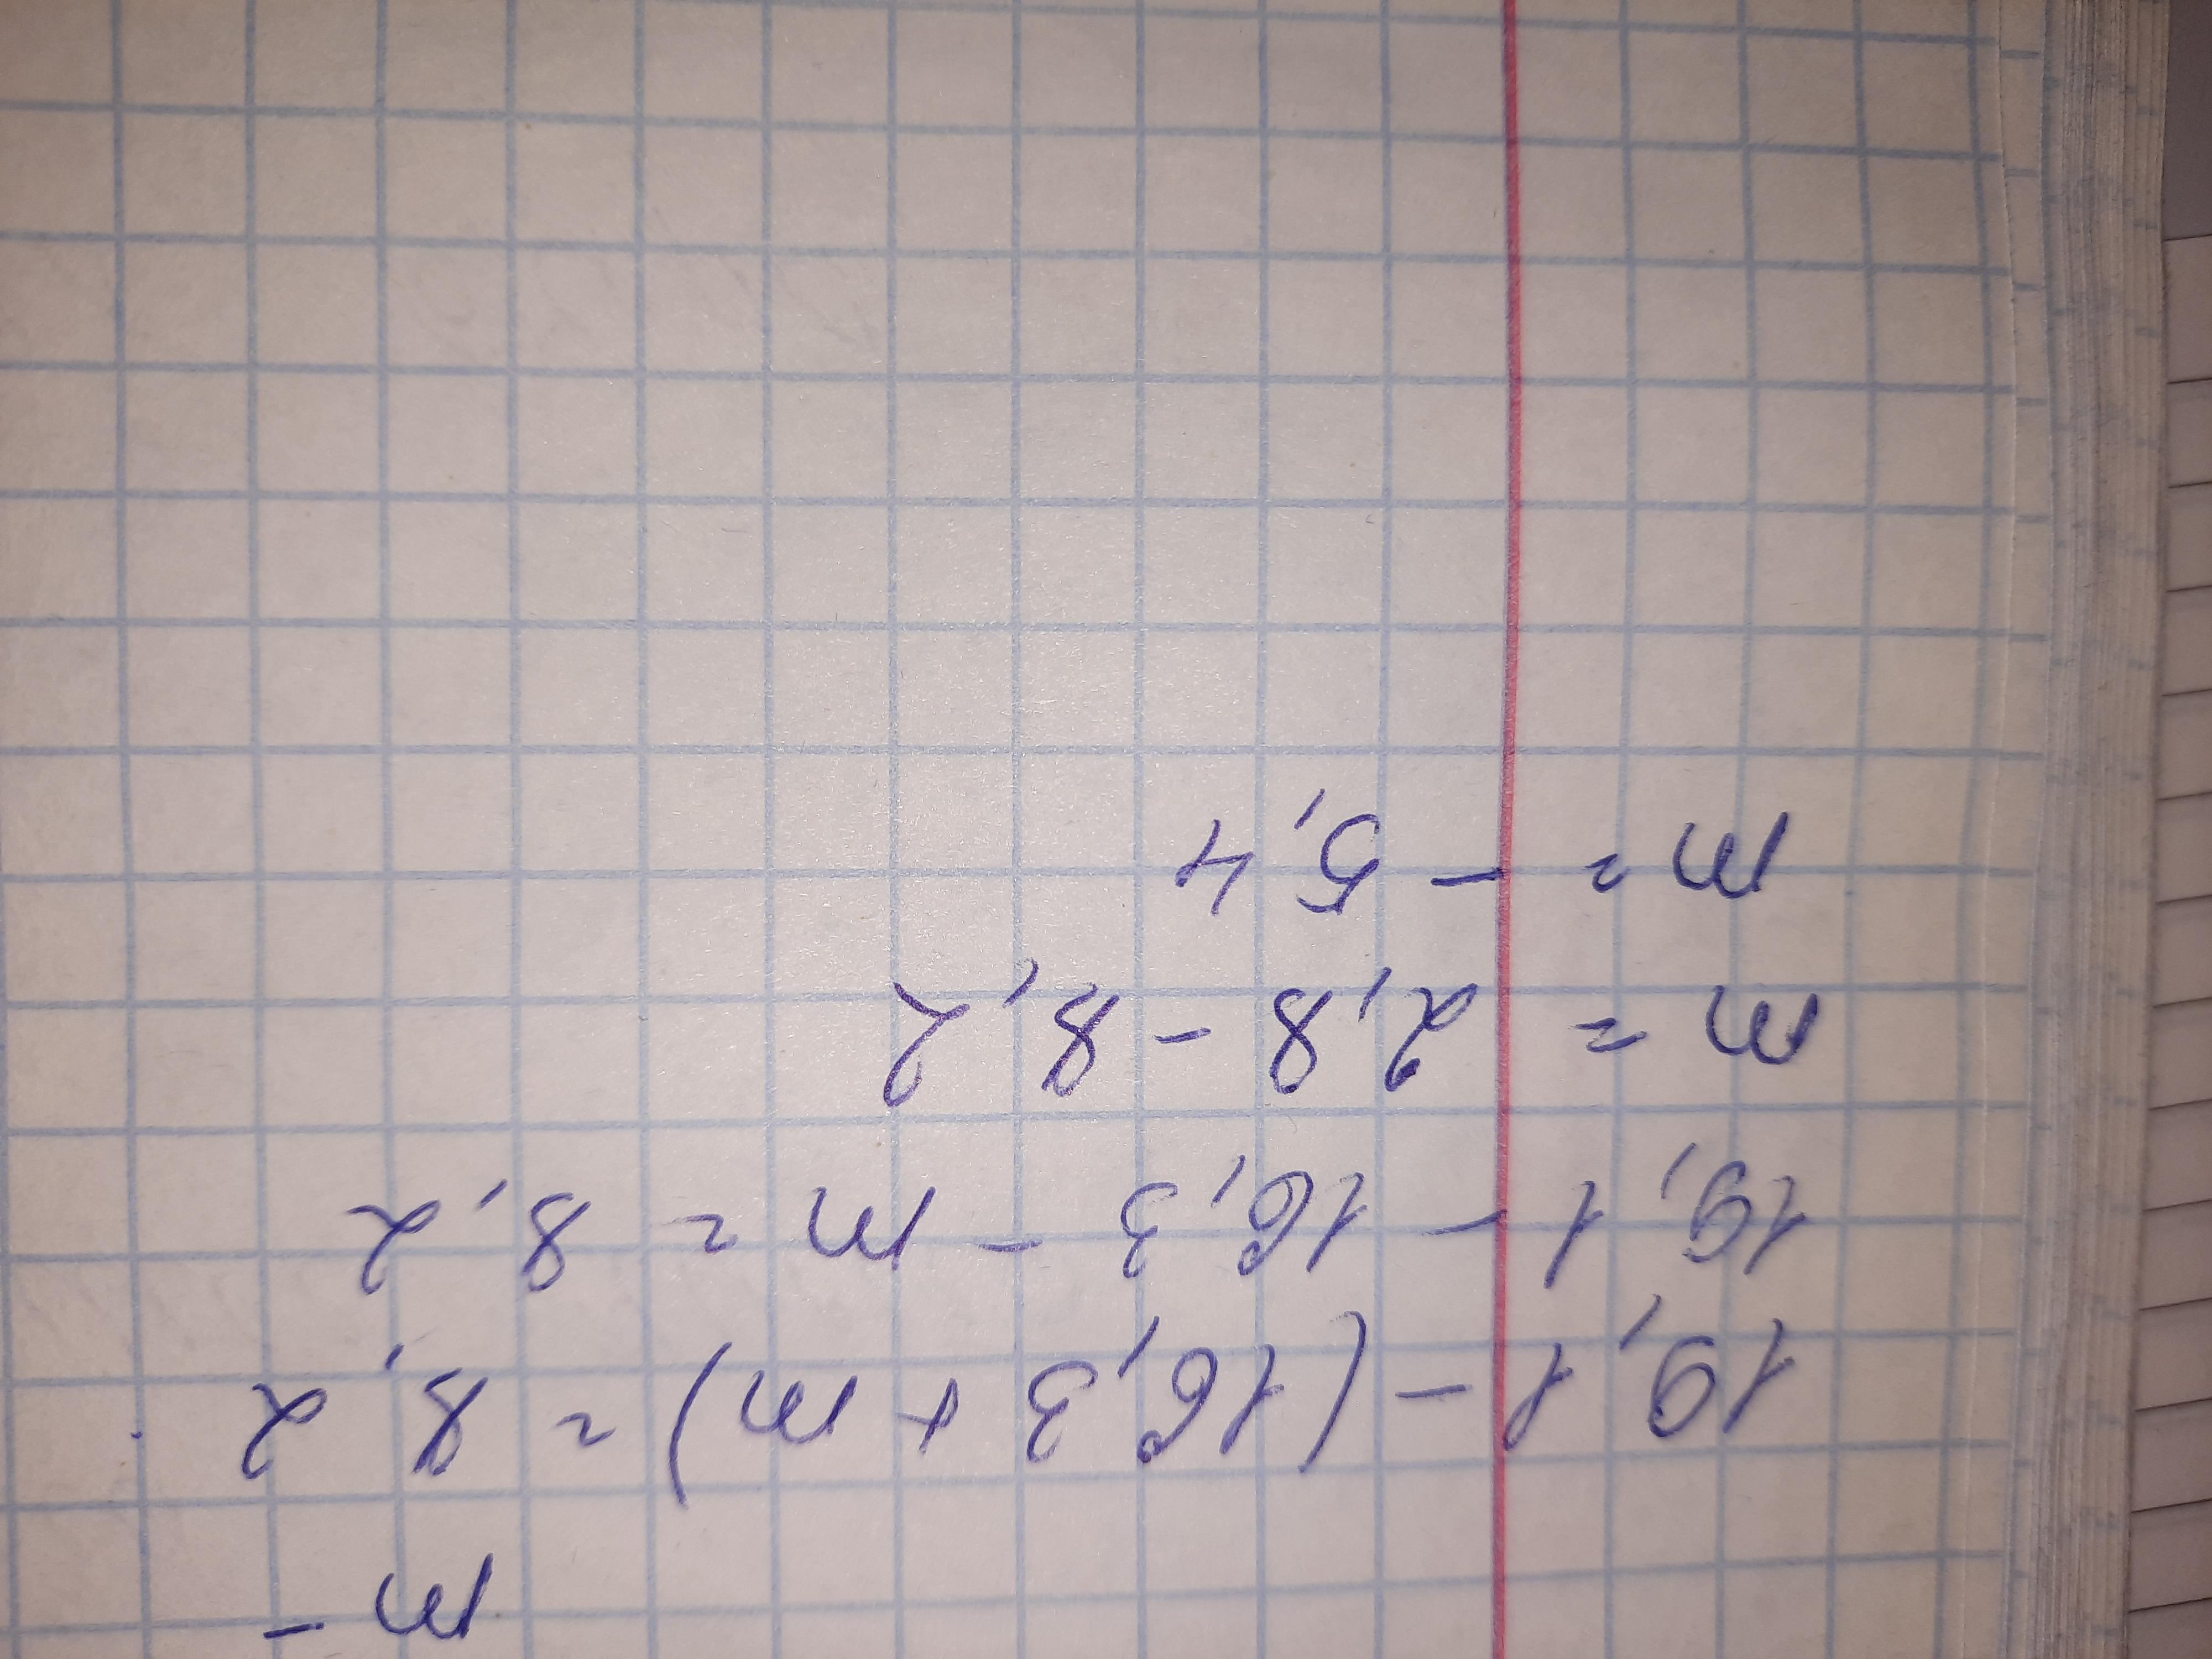 m -
19,1 - (16,3 + m) = 8,2
19,1 - 16,3 - m = 8,2
m = 2,8 - 8,2
m = - 5,4